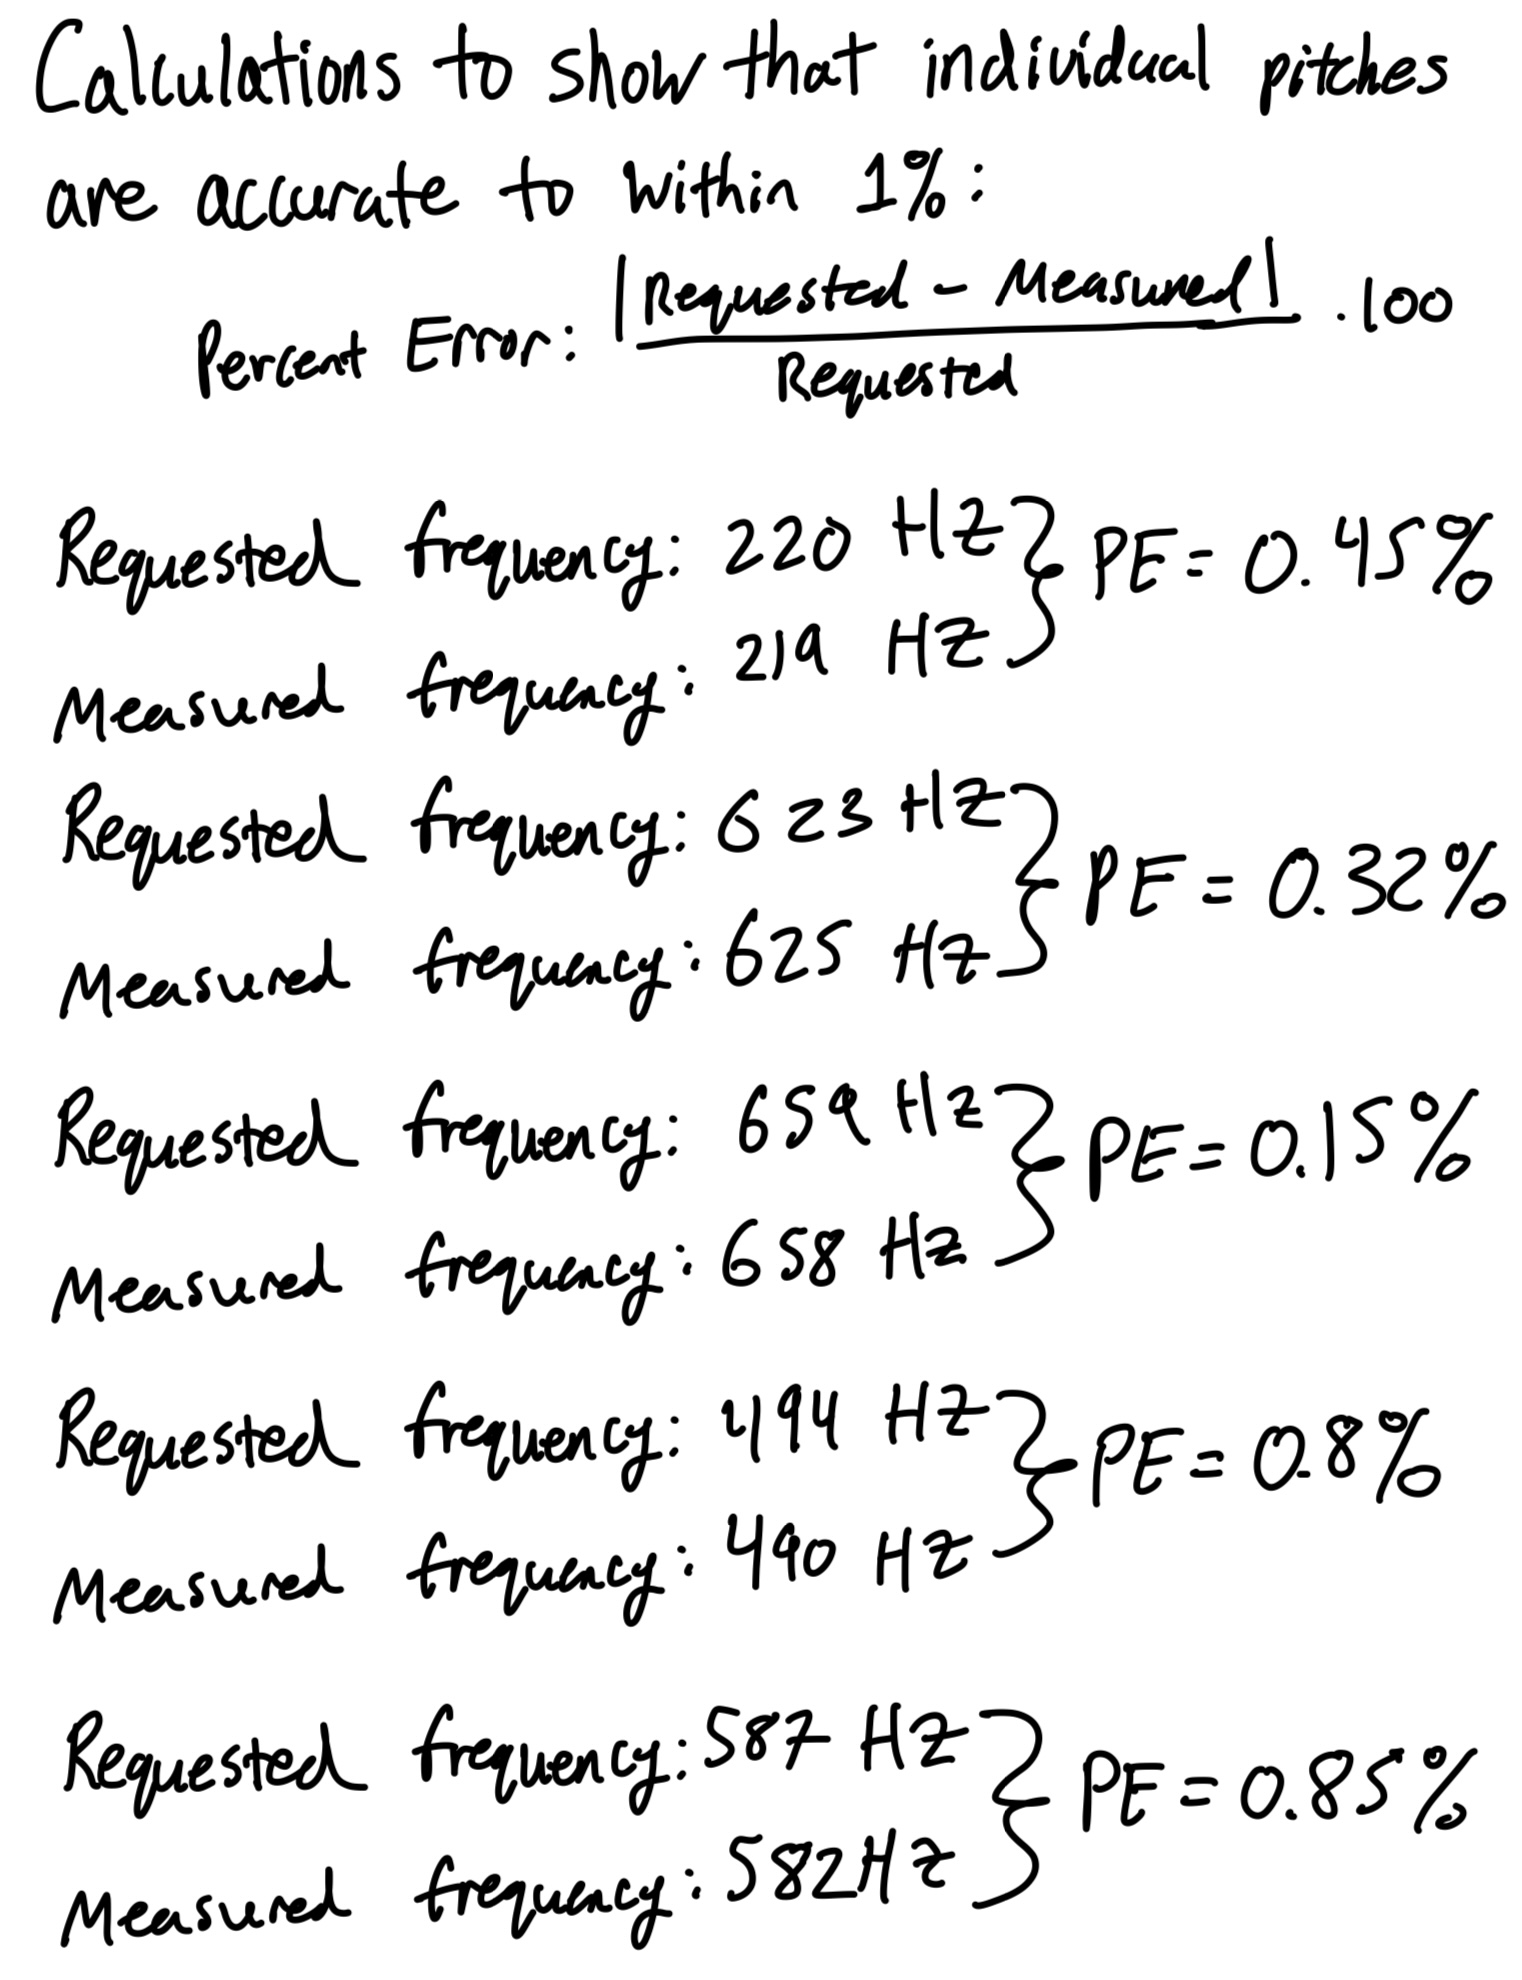 Calculations to show that individual pitches
are accurate to within 1%:
Percent Error: |Requested - Measured| / Requested · 100
Requested frequency: 220 Hz } PE = 0.45%
Measured frequency: 219 Hz
Requested frequency: 623 Hz } PE = 0.32%
Measured frequency: 625 Hz
Requested frequency: 659 Hz } PE = 0.15%
Measured frequency: 658 Hz
Requested frequency: 494 Hz } PE = 0.8%
Measured frequency: 490 Hz
Requested frequency: 587 Hz } PE = 0.85%
Measured frequency: 582 Hz